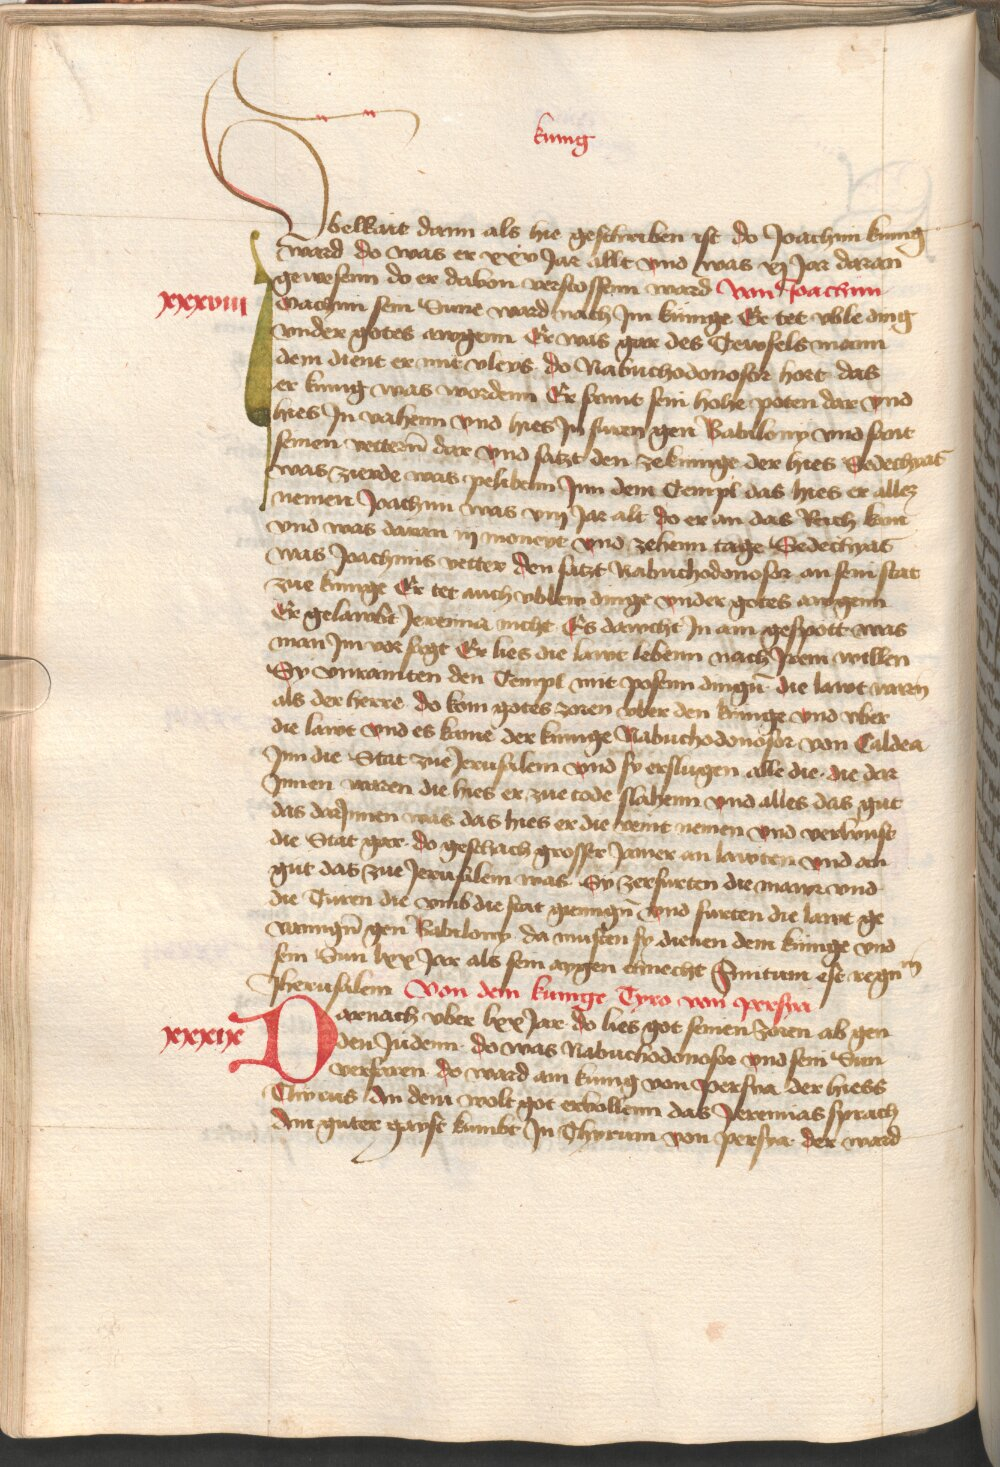 kunig
Vbelkait dann als hie geschriben ist do Joachim kunig
ward do was er xxv Jar allt vnd was xj Jar daran
gewesenn do er dauon verstossenn ward Von Joachim
xxxviii
Joachim sein Sune ward nach Jm kunige Er tet vble ding
vnder gotes awgenn Er was gar des Tewfels mann
dem dient er mit vleys do Nabuchodonosor hort das
er kunig was wordenn Er sannt sein hohe poten dar vnd
hies Jn vahenn vnd hies Jn furen gen Babilony vnd sant
seinen vettern dar vnd satzt den ze kunige der hies Sedechyas
was zierde was pelibenn Jnn dem Templ das hies er allez
nemen Joachim was viij Jar alt do er an das Reich kom
vnd was daran iij moneyt vnd zehenn tage Sedechyas
was Joachims vetter den satzt Nabuchodonosor an sein stat
zue kunige Er tet auch vblew dinge vnder gotes awgenn
Er gelawbt Jeremia nicht Es dawcht Jn ain gespott was
man Jm vor sagt Er lies die lawt lebenn nach Jrem willen
Sy vnrainten den Templ mit posenn dingn die lawt waren
als der herre do kom gotes zoren vber den kunige vnd vber
die lawt vnd es kame der kunige Nabuchodonosor von Caldea
Jnn die Stat zue Jerusalem vnd sy erslugen alle die die dar
Jnnen waren die hies er zue tode slahenn vnd alles das gut
das darJnnen was das hies er die veint nemen vnd verbrunst
die Stat gar do geschach grosser Jamer an lawten vnd an
gut das zue Jerusalem was Sy zerfurten die mawr vnd
die Turen die vmb die stat giengn vnd furten die lawt ge
vanngn gen Babilony da musten sy dienen dem kunige vnd
sein Sun lxx Jar als sein aygen chnecht Finitum est regnm
Jherusalem Von dem kunige Tyro von persya
xxxix
Darnach vber lxx Jar do lies got seinen zoren ab gen
den Judenn do was Nabuchodonosor vnd sein Sun
verfaren do ward ain kunig von persya der hiess
Thirus An dem wolt got erbollenn das Jeremias sprach
Am guter gayst kumbt Jn Thyrum von persya der ward